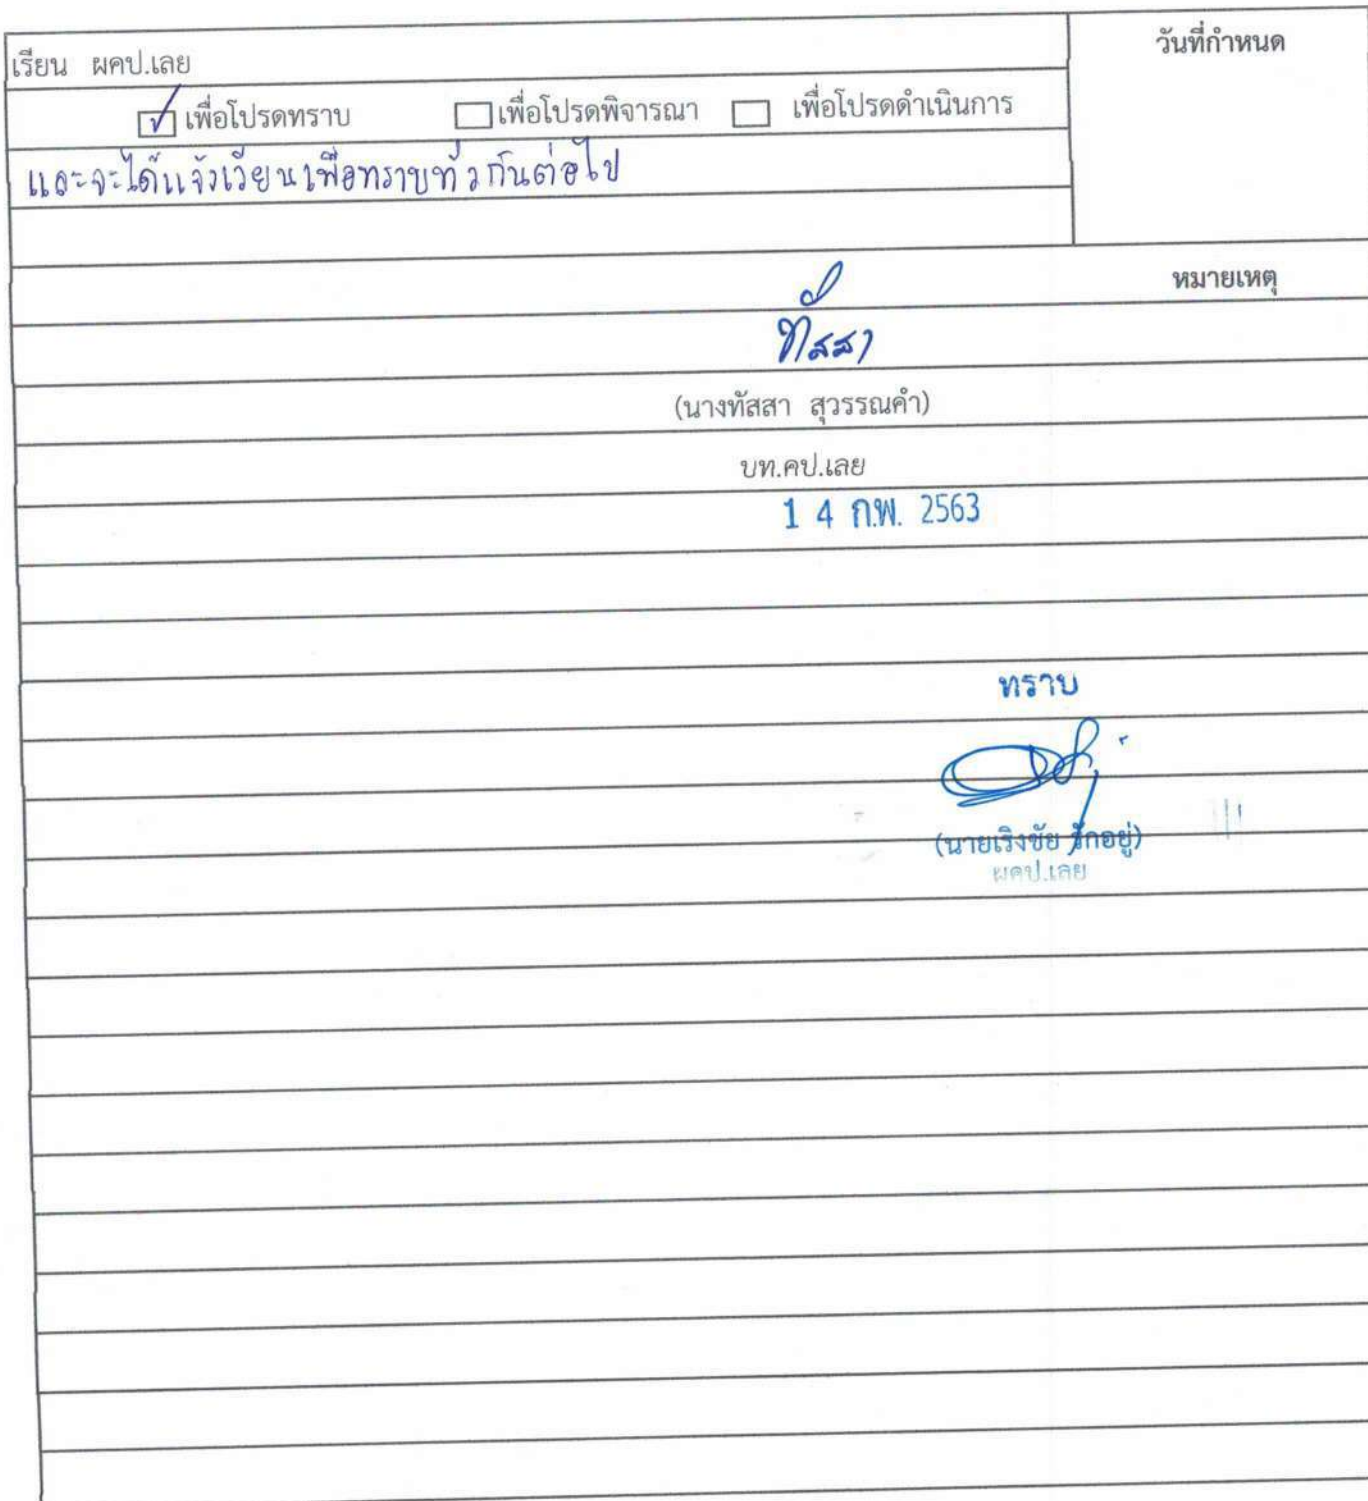 เรียน ผคป.เลย
วันที่กำหนด
เพื่อโปรดทราบ เพื่อโปรดพิจารณา เพื่อโปรดดำเนินการ
และจะได้แจ้งเวียนเพื่อทราบทั่วกันต่อไป
หมายเหตุ
ทัสสา
(นางทัสสา สุวรรณคำ)
บท.คป.เลย
1 4 ก.พ. 2563
ทราบ
(นายเริงชัย รักอยู่)
ผคป.เลย